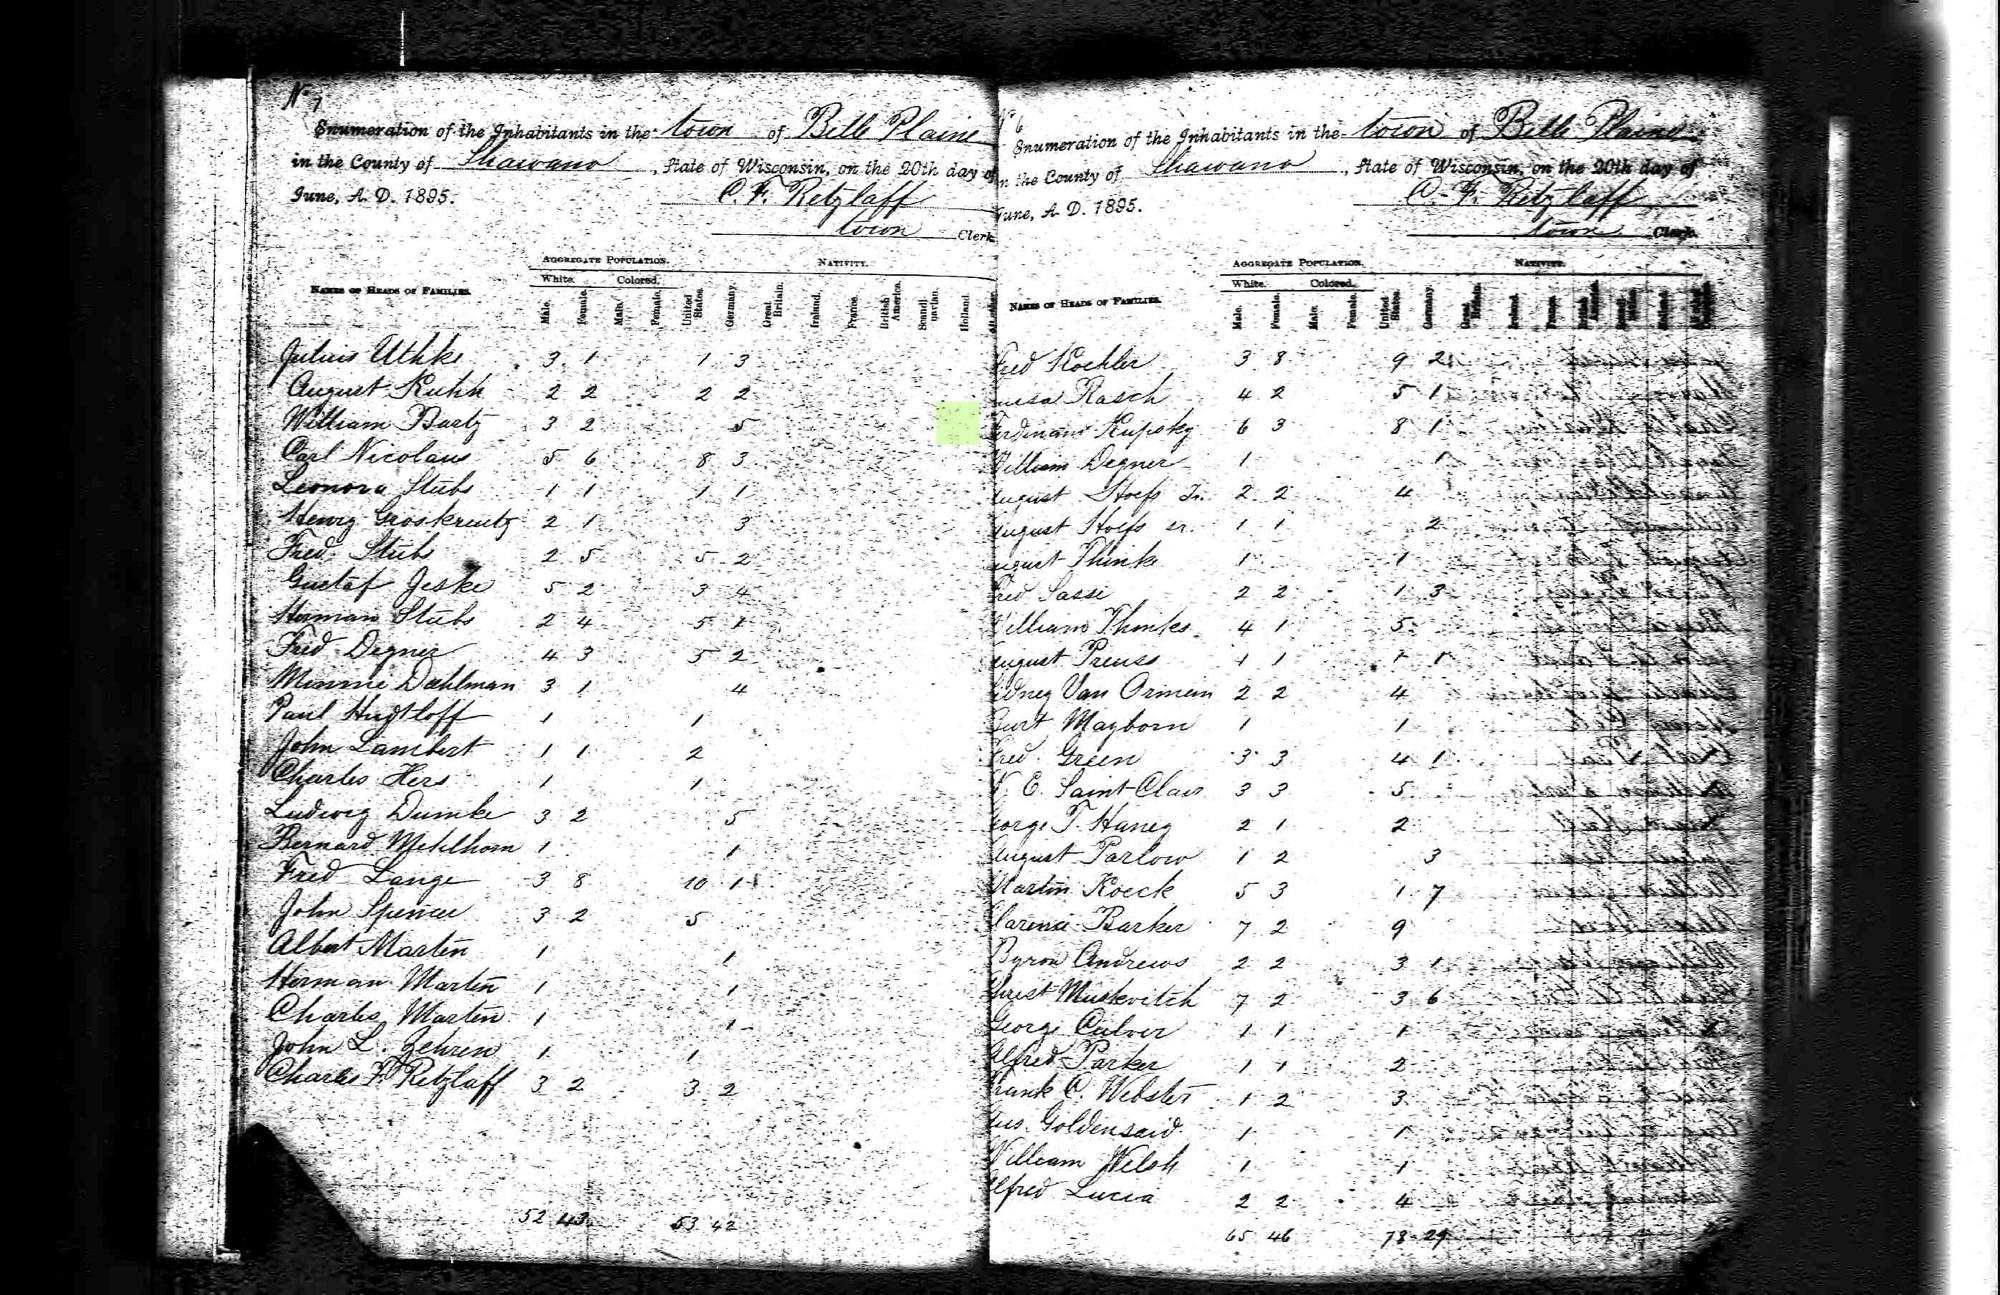 No 7
Enumeration of the Inhabitants in the town of Belle Plaine
in the County of Shawano, State of Wisconsin, on the 20th day of
June, A. D. 1895. C. F. Retzlaff
town Clerk
AGGREGATE POPULATION. NATIVITY.
White. Colored.
NAMES OF HEADS OF FAMILIES. Male. Female. Male. Female. United States. Germany. Great Britain. Ireland. France. British America. Scandinavian. Holland.
Julius Uthke 3 1 1 3
August Kuhn 2 2 2 2
William Bartz 3 2 5
Carl Nicolaus 5 6 8 3
Leonora Stubs 1 1 1 1
Henry Groskreutz 2 1 3
Fred Stubs 2 5 5 2
Gustaf Jeske 5 2 3 4
Herman Stubs 2 4 5 1
Fred Degner 4 3 5 2
Minnie Dahlman 3 1 4
Paul Hudtloff 1 1
John Lambert 1 1 2
Charles Hers 1 1
Ludwig Dumke 3 2 5
Bernard Mehlhorn 1 1
Fred Lange 3 8 10 1
John Spencer 3 2 5
Albert Martin 1 1
Herman Martin 1 1
Charles Martin 1 1
John L. Zehren 1 1
Charles F. Retzlaff 3 2 3 2
52 43 53 42
No 6
Enumeration of the Inhabitants in the town of Belle Plaine
in the County of Shawano, State of Wisconsin, on the 20th day of
June, A. D. 1895. C. F. Retzlaff
town Clerk.
AGGREGATE POPULATION. NATIVITY.
White. Colored.
NAMES OF HEADS OF FAMILIES. Male. Female. Male. Female. United States. Germany. Great Britain. Ireland.
Fred Koehler 3 8 9 2
Rasch 4 2 5 1
Ferdinand Kupsky 6 3 8 1
William Degner 1 1
August Hoefs Jr. 2 2 4
August Hoefs sr. 1 1 2
August Thimke 1 1
Fred Sasse 2 2 1 3
William Thomks 4 1 5
August Preuss 1 1 1 1
Sidney Van Ornum 2 2 4
Burt Mayborn 1 1
Fred Green 3 3 4 1
E. Saint Clair 3 3 5
George T. Haney 2 1 2
August Parlow 1 2 3
Martin Koeck 5 3 1 7
Clarence Barker 7 2 9
Byron Andrews 2 2 3 1
Christ Muskevitch 7 2 3 6
George Culver 1 1 1
Alfred Parker 1 1 2
Frank C. Webster 1 2 3
Gus. Goldensaid 1 1
William Welsh 1 1
Alfred Lucia 2 2 4
65 46 78 29